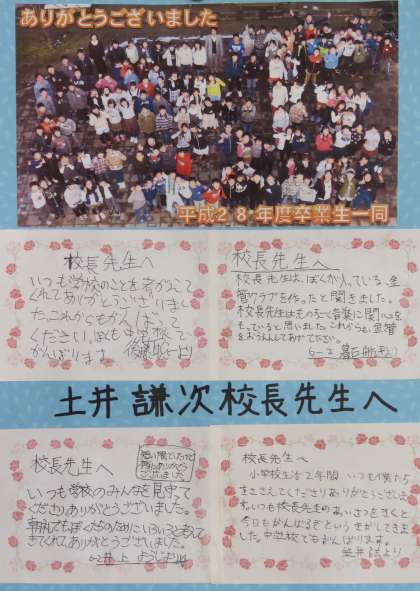 ありがとうございました
平成28年度卒業生一同
校長先生へ
いつも学校のことを考がえて
くれてありがとうございまし
た。これからもがんばって
ください。ぼくも中学校で
がんばります。
より
校長先生へ
校長先生は、ぼくが入っている、金
管クラブを作ったと聞きました。
校長先生はものすごく音楽に関心を
もっていると思いました。これからも、金管
をおうえんしてあげて下さい。
6-2
より
土井謙次校長先生へ
校長先生へ
短い間でしたが
ありがとう
ございました
いつも学校のみんなを見守って
くださりありがとうございました。
ぼくたちのためにいろいろと考えて
きてくれてありがとうございました。
6-2 井上 より
校長先生へ
小学校生活2年間 いつも僕たち
をささえてくださりありがとうございま
す。いつも校長先生のあいさつをきくと
今日もがんばるぞという気がしてきま
した。中学校でもがんばります。
より